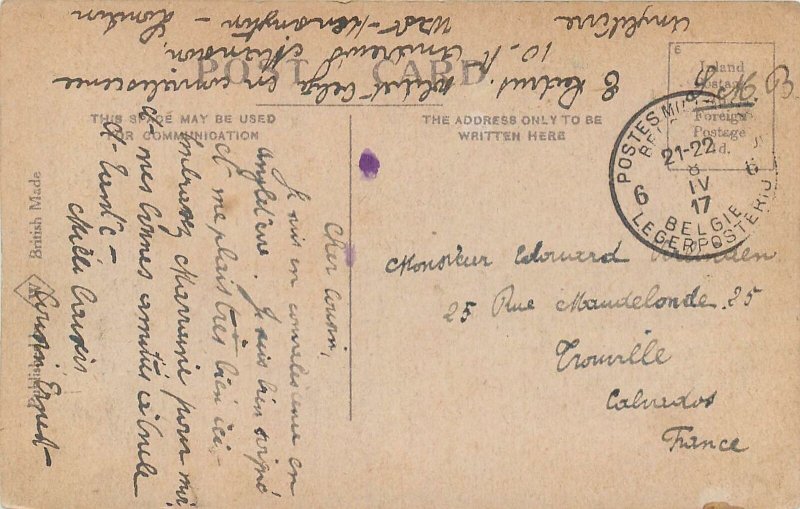 E
Soldat belge en convalescence
10. St Andrews Mansion,
West-Kensington - London
Angleterre
POST CARD
S.M.B
THIS SPACE MAY BE USED
FOR COMMUNICATION
THE ADDRESS ONLY TO BE
WRITTEN HERE
Inland
Postage
Foreign
Postage
d.
POSTES MILITAIRES
BELGIQUE
21-22
8
IV
17
6 6
BELGIE
LEGERPOSTERIJ
British Made
Cher Cousin,
Je suis en convalescence en
Angleterre. Je suis bien soigné
et me plais très bien ici.
Embrassez Marraine pour moi
et mes bonnes amitiés à Oncle
et Tante -
Mille baisers
Cousin Ernest -
Monsieur Edouard
25 Rue Maudelonde 25
Trouville
Calvados
France